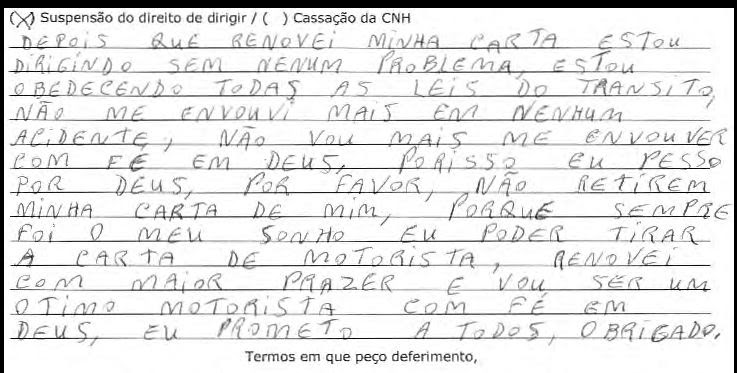 (X) Suspensão do direito de dirigir / ( ) Cassação da CNH
DEPOIS QUE RENOVEI MINHA CARTA ESTOU
DIRIGINDO SEM NENUM PROBLEMA, ESTOU
OBEDECENDO TODAS AS LEIS DO TRANSITO,
NÃO ME ENVOUVI MAIS EM NENHUM
ACIDENTE, NÃO VOU MAIS ME ENVOUVER
COM FÉ EM DEUS, PORISSO EU PESSO
POR DEUS, POR FAVOR, NÃO RETIREM
MINHA CARTA DE MIM, PORQUE SEMPRE
FOI O MEU SONHO EU PODER TIRAR
A CARTA DE MOTORISTA, RENOVEI
COM MAIOR PRAZER E VOU SER UM
OTIMO MOTORISTA COM FÉ EM
DEUS, EU PROMETO A TODOS, OBRIGADO.
Termos em que peço deferimento,